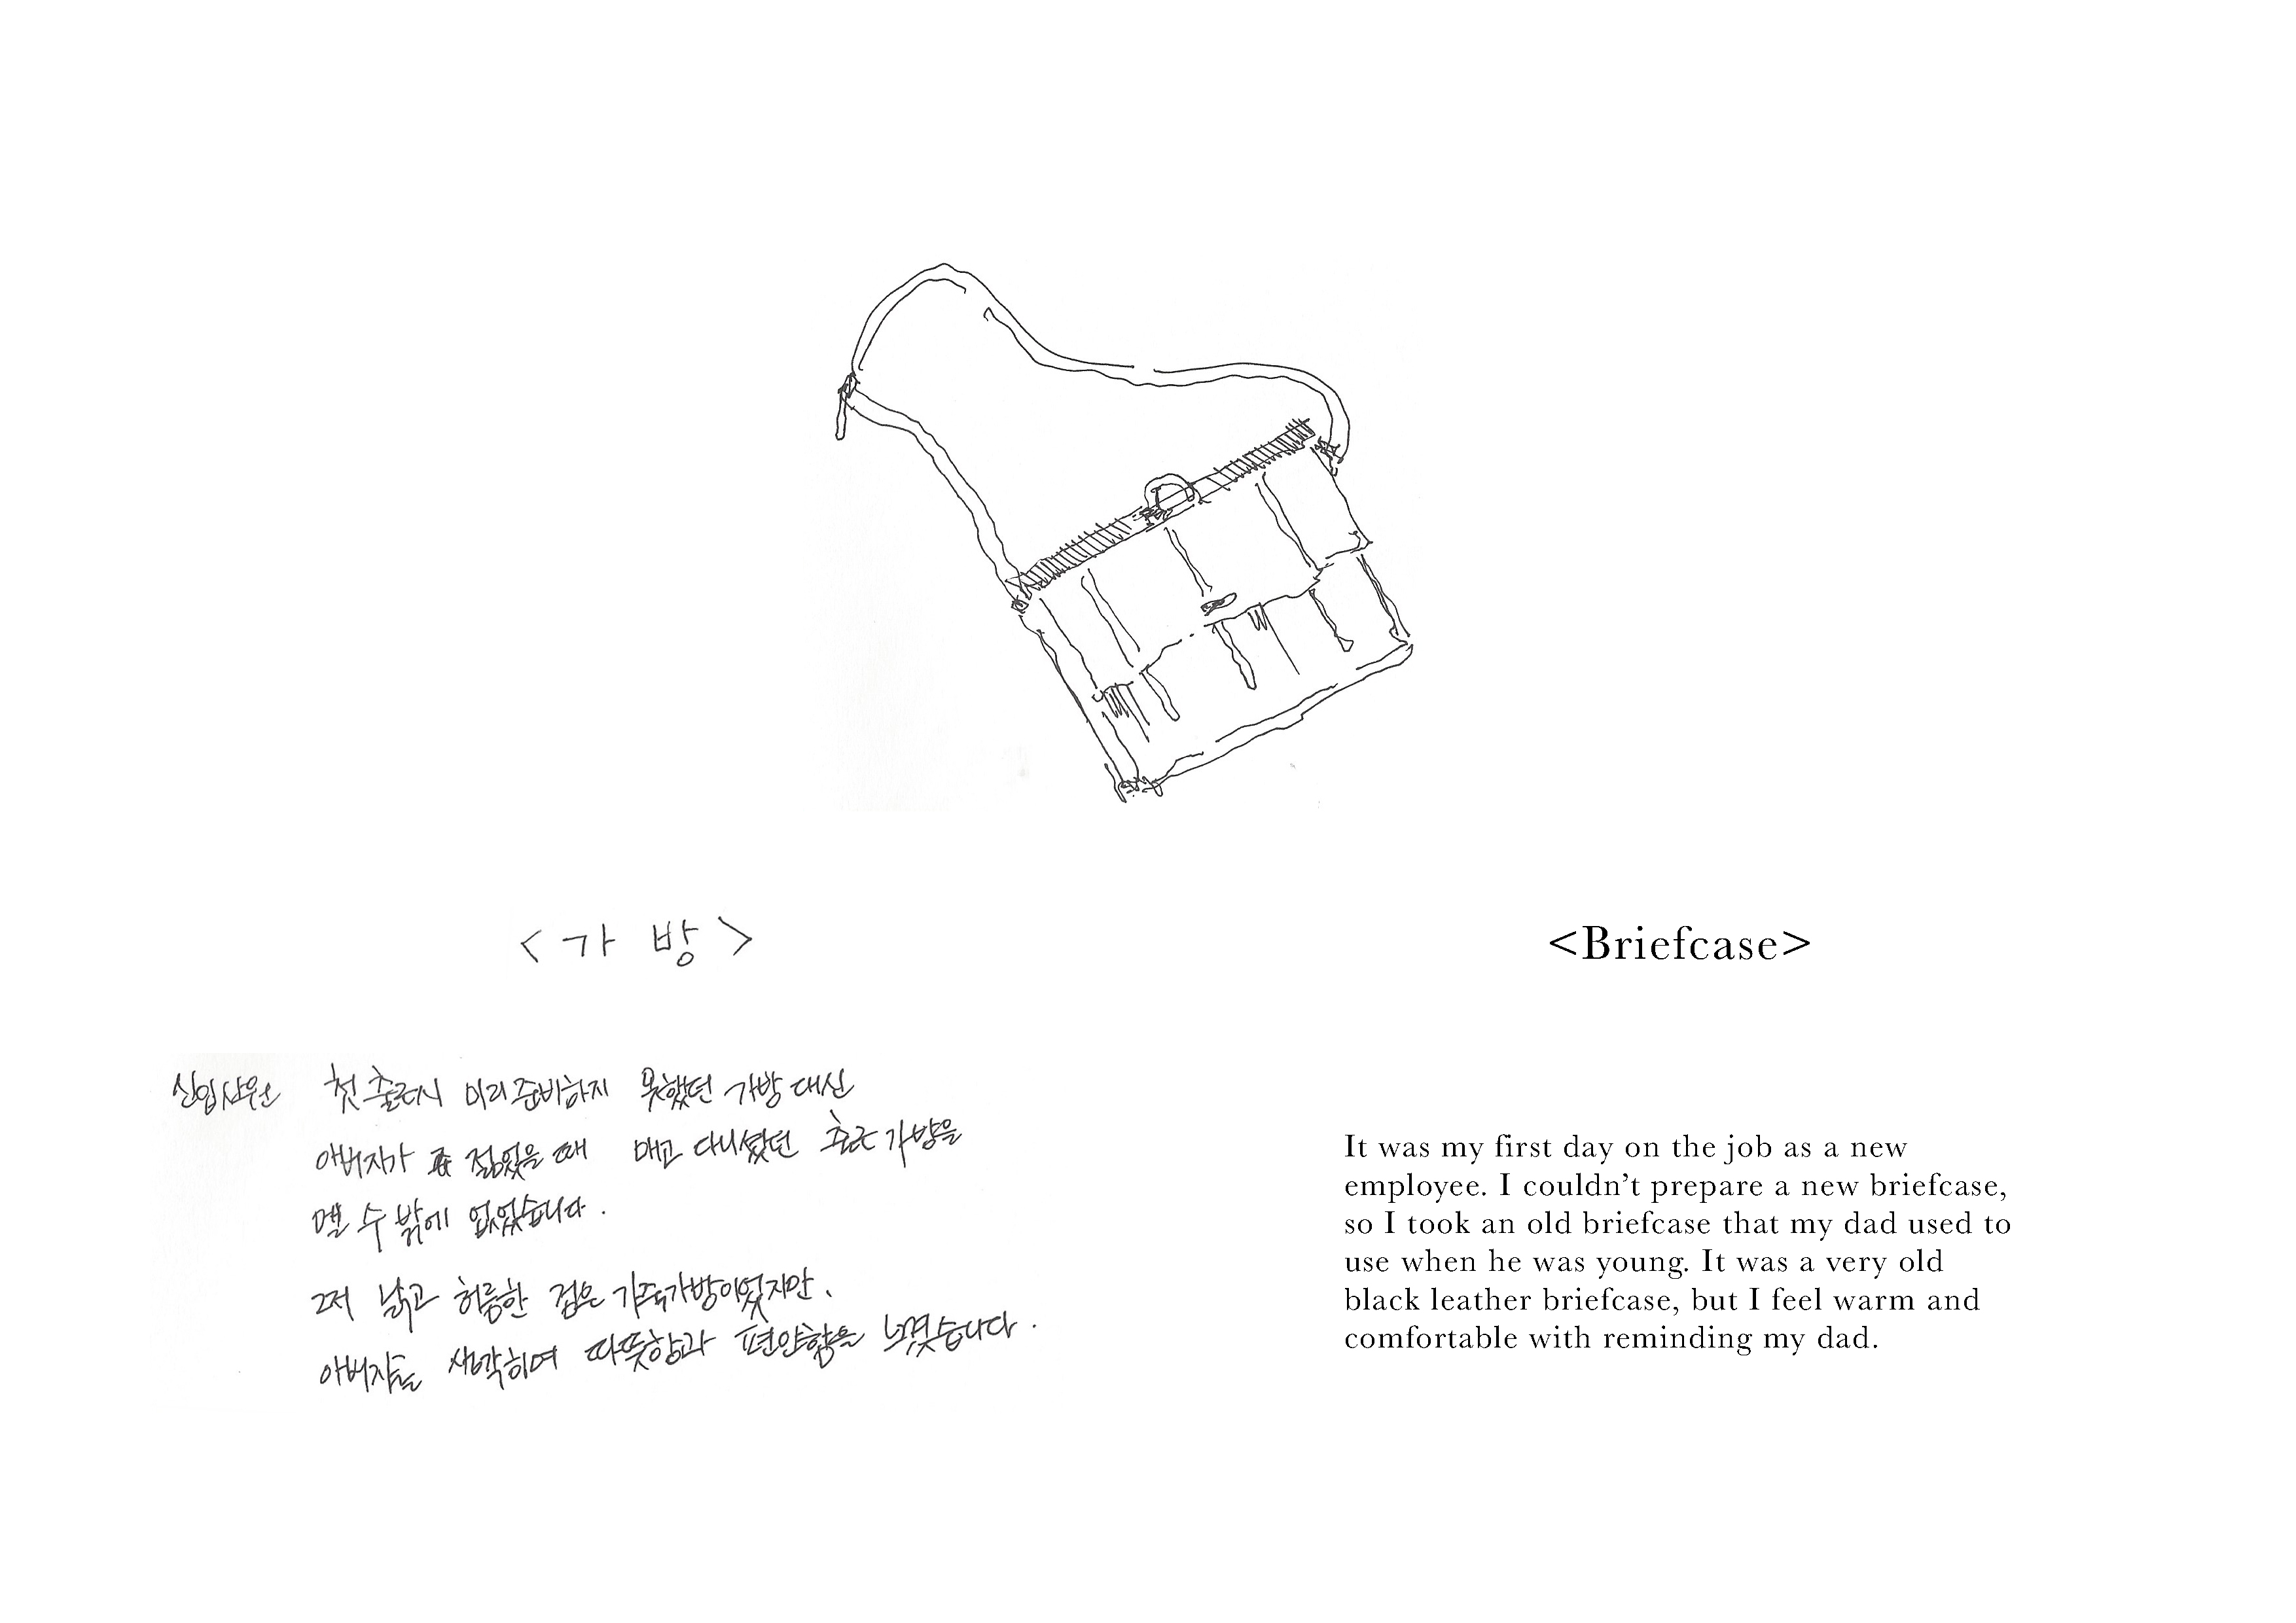 < 가 방 >
신입사원 첫 출근시 미리 준비하지 못했던 가방 대신
아버지가 젊었을 때 매고 다니셨던 출근 가방을
멜 수 밖에 없었습니다.
그저 낡고 허름한 검은 가죽가방이었지만,
아버지를 생각하며 따뜻함과 편안함을 느꼈습니다.
<Briefcase>
It was my first day on the job as a new
employee. I couldn’t prepare a new briefcase,
so I took an old briefcase that my dad used to
use when he was young. It was a very old
black leather briefcase, but I feel warm and
comfortable with reminding my dad.